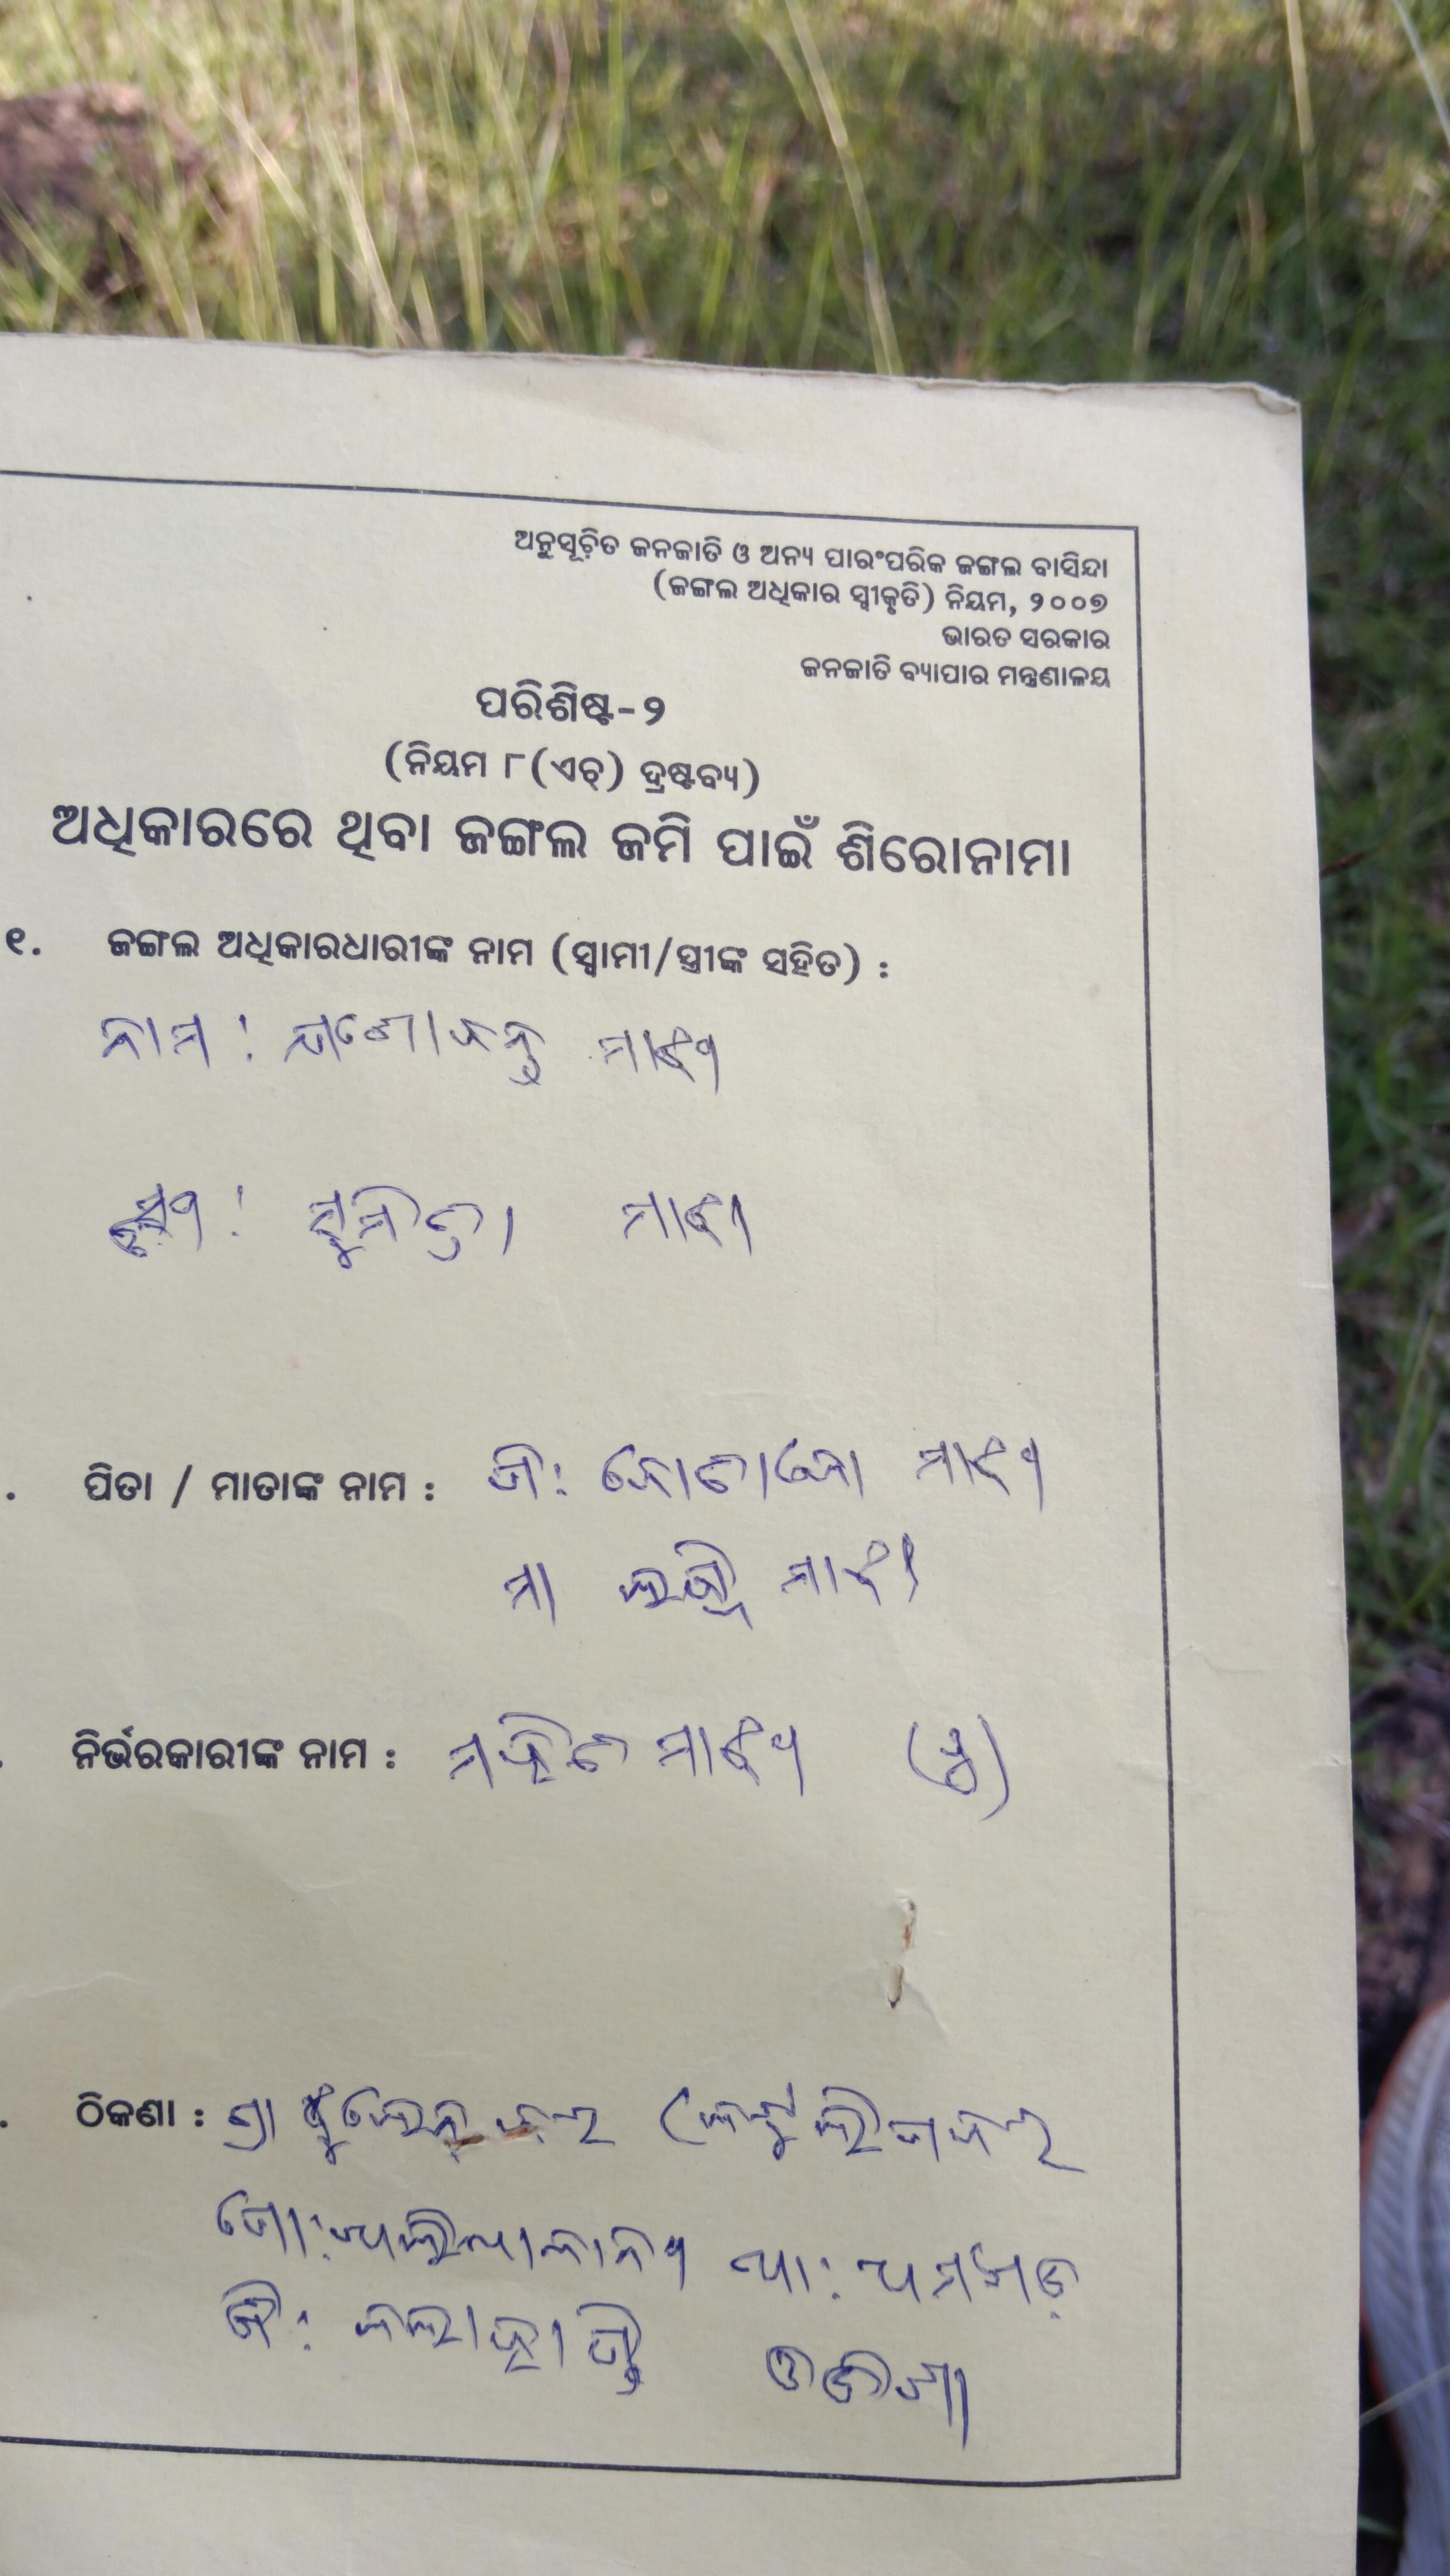 ଅନୁସୂଚିତ ଜନଜାତି ଓ ଅନ୍ୟ ପାରଂପରିକ ଜଙ୍ଗଲ ବାସିନ୍ଦା
(ଜଙ୍ଗଲ ଅଧିକାର ସ୍ୱୀକୃତି) ନିୟମ, ୨୦୦୭
ଭାରତ ସରକାର
ଜନଜାତି ବ୍ୟାପାର ମନ୍ତ୍ରଣାଳୟ
ପରିଶିଷ୍ଟ-୨
(ନିୟମ ୮(ଏଚ୍) ଦ୍ରଷ୍ଟବ୍ୟ)
ଅଧିକାରରେ ଥିବା ଜଙ୍ଗଲ ଜମି ପାଇଁ ଶିରୋନାମା
୧. ଜଙ୍ଗଲ ଅଧିକାରଧାରୀଙ୍କ ନାମ (ସ୍ୱାମୀ/ସ୍ତ୍ରୀଙ୍କ ସହିତ) :
ନାମ : ମାଝୀ
ସ୍ତ୍ରୀ : ସୁମିତ୍ରା ମାଝୀ
ପିତା / ମାତାଙ୍କ ନାମ : ପି: ମାଝୀ
ମା ମାଝୀ
ନିର୍ଭରକାରୀଙ୍କ ନାମ : ମାଝୀ
ଠିକଣା : ଗ୍ରା
ପୋ: ଥା:
ଜି: କଳାହାଣ୍ଡି ଓଡିଶା